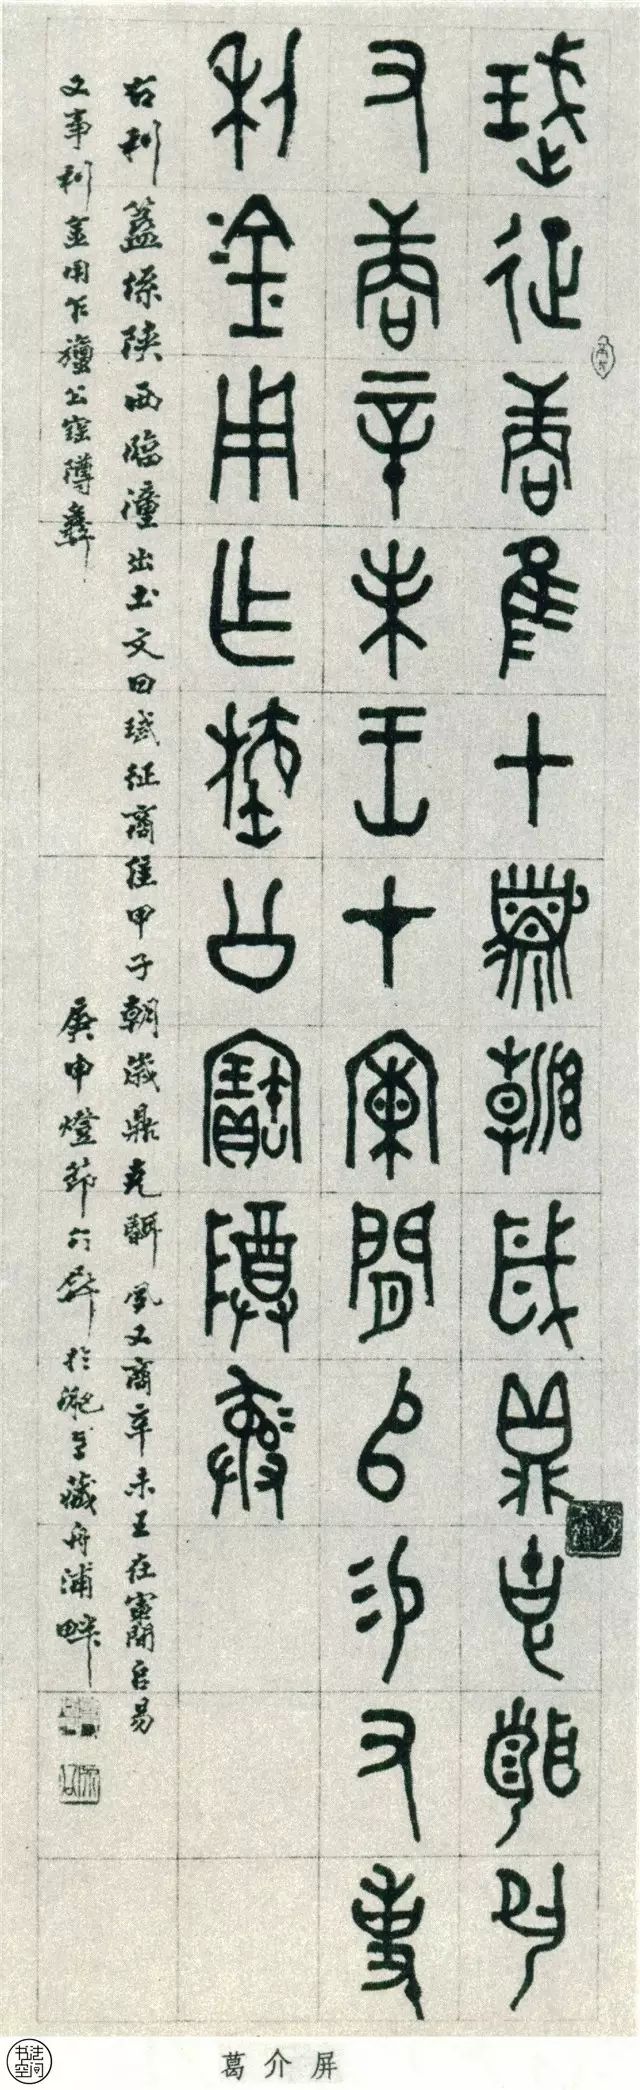 珷征商隹甲子朝歲鼎克聞夙
又商辛未王才闌𠂤易又事
利金用乍旜公寶𬯚彝
右利簋係陝西臨潼出土文曰珷征商隹甲子朝歲鼎克聞夙又商辛未王在闌𠂤易
又事利金用乍旜公寶𬯚彝
庚申燈節介屏於淝上藏舟浦畔
葛介屏
书法空间